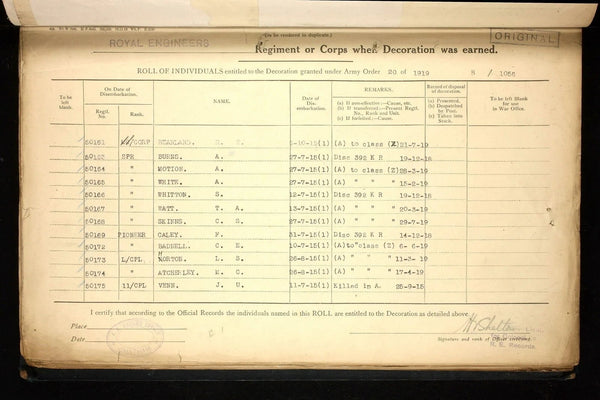 (To be rendered in duplicate.)
ORIGINAL
ROYAL ENGINEERS
Regiment or Corps when Decoration was earned.
ROLL OF INDIVIDUALS entitled to the Decoration granted under Army Order 20 of 1919
8 / 1056
To be left blank.
On Date of Disembarkation.
Regtl. No.
Rank.
NAME.
Date of Disembarkation.
REMARKS.
(a) If non-effective:—Cause, etc.
(b) If transferred:—Present Regtl. No., Rank and Unit.
(c) If forfeited:—Cause.
Record of disposal of decoration.
(a) Presented.
(b) Despatched by Post.
(c) Taken into Stock.
To be left Blank for use in War Office.
50151 CORP (A) to class (Z) 21-7-19
SPR BURNS. A. 27-7-15(1) Disc 392 K R 19-12-18
50164 " MOTION. A. 27-7-15(1) (A) to class (Z) 28-3-19
50165 " WHITE. A. 27-7-15(1) (A) " " " 15-2-19
50166 " WHITTON. S. 12-7-15(1) Disc 392 K R 19-12-18
50167 " WATT. T. A. 13-7-15(1) (A) " " " 20-3-19
50168 " SKINNS. C. S. 27-7-15(1) (A) " " " 29-7-19
50169 PIONEER CALEY. F. 31-7-15(1) Disc 392 K R 14-12-18
50172 " BADDELL. C. E. 10-7-15(1) (A) to class (Z) 6- 6-19
50173 L/CPL HORTON. L. S. 26-8-15(1) (A) " " " 11-3- 19
50174 " ATCHERLEY. M. C. 26-8-15(1) (A) " " " 17-4-19
50175 11/CPL VENN. J. U. 11-7-15(1) Killed in A. 25-9-15
I certify that according to the Official Records the individuals named in this ROLL are entitled to the Decoration as detailed above.
Place
Date
Signature and rank of Officer certifying.
R. E. Records.